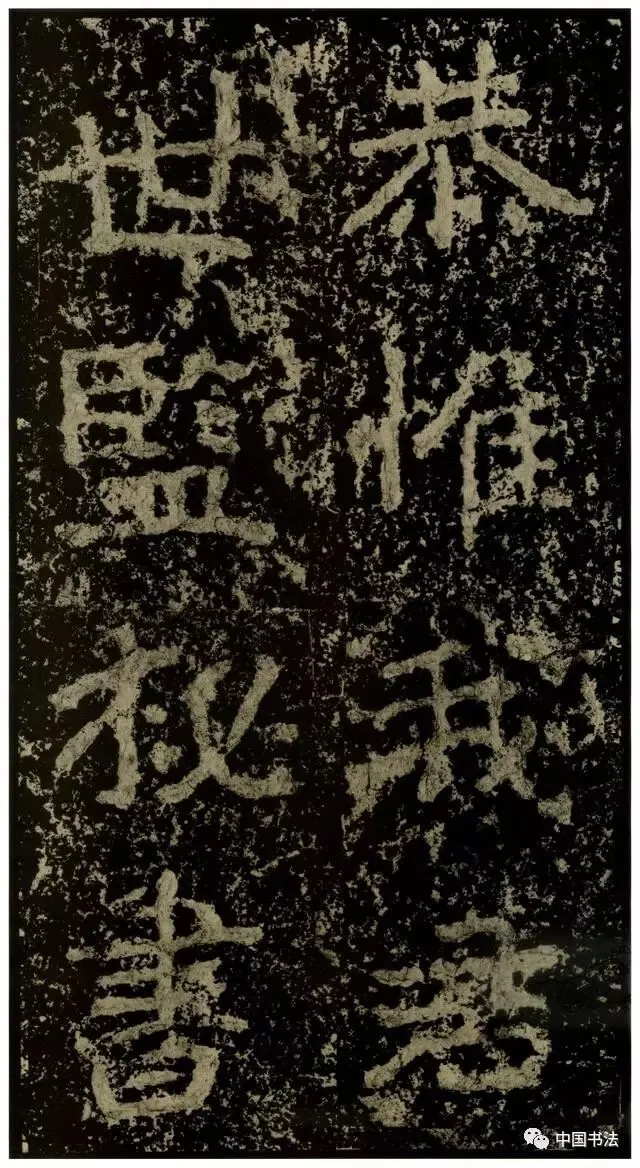 恭惟我君
世監秘書
中国书法